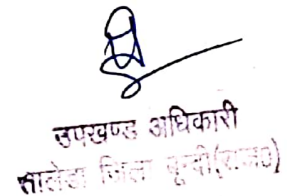 उपखण्ड अधिकारी
तालेडा जिला बून्दी(राज0)